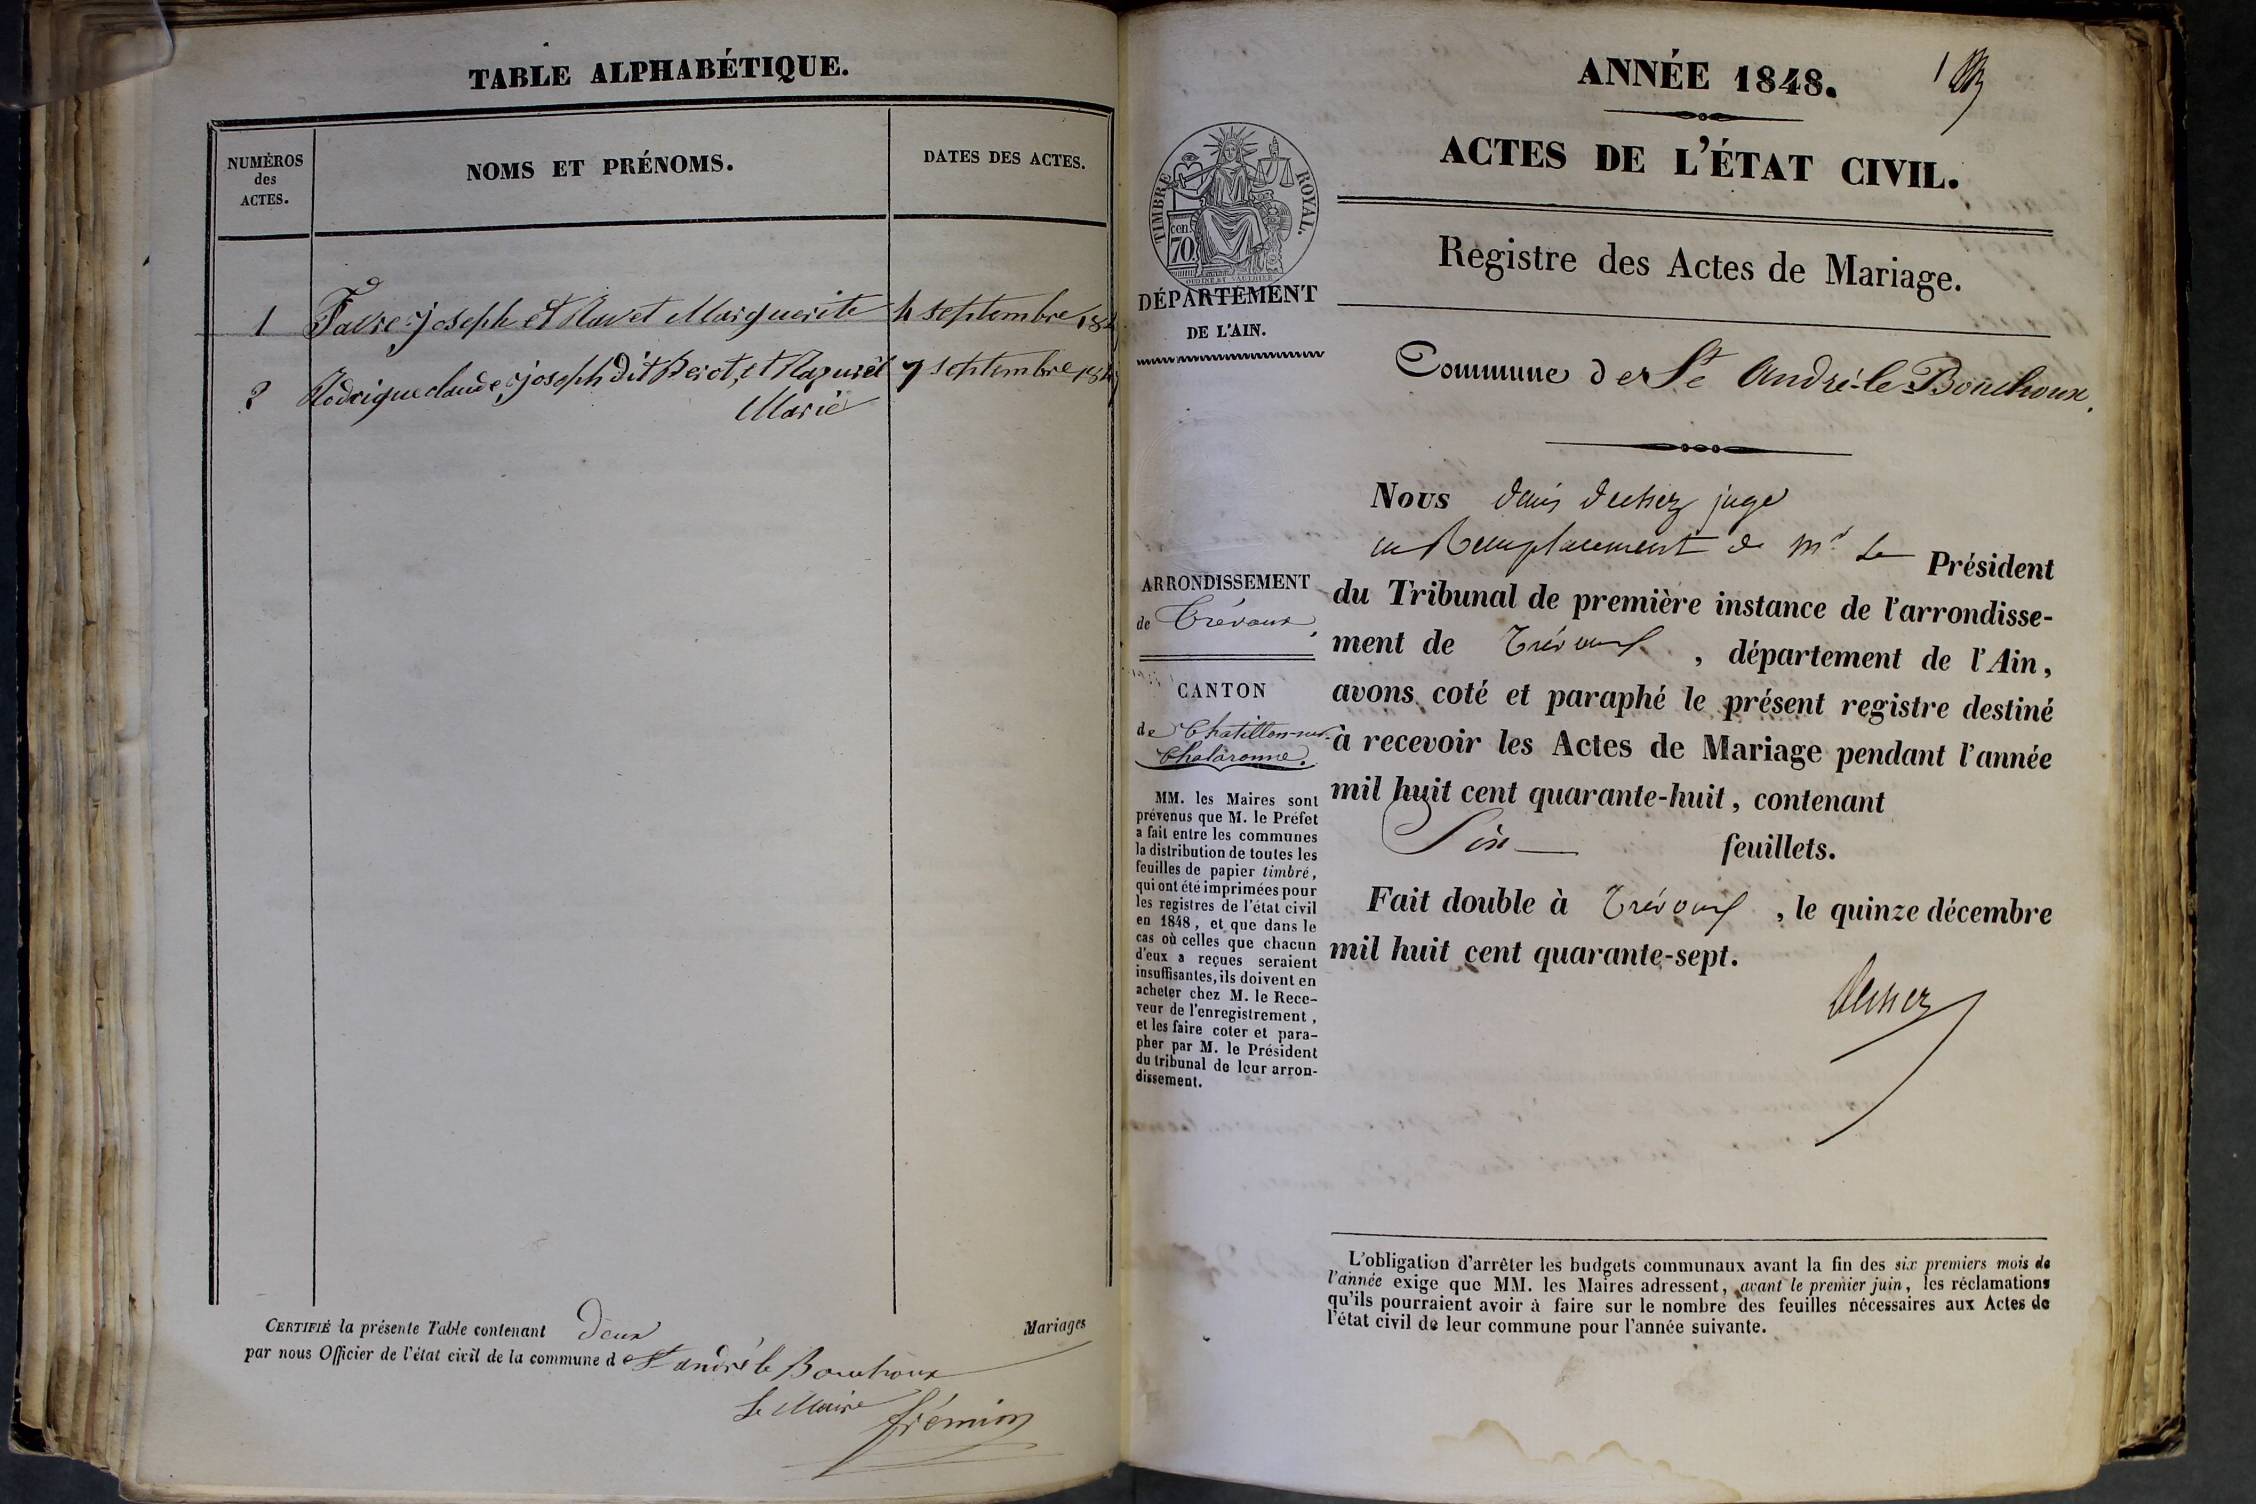 TABLE ALPHABÉTIQUE.
NUMÉROS
des
ACTES.
NOMS ET PRÉNOMS.
DATES DES ACTES.
1 Favre joseph et Ravet Marguerite 4 septembre
2 Rodrigue claude joseph dit Perot, et Mazuret 7 septembre
Marie
CERTIFIÉ la présente Table contenant deux Mariages
par nous Officier de l'état civil de la commune de St andré le Bouchoux
Le Maire
frémion
ANNÉE 1848.
1
ACTES DE L'ÉTAT CIVIL.
TIMBRE ROYAL.
70 cen
DÉPARTEMENT
DE L'AIN.
Registre des Actes de Mariage.
Commune de St André-le-Bouchoux.
ARRONDISSEMENT
de Trévoux,
CANTON
de Chatillon-sur-
Chalaronne.
MM. les Maires sont
prévenus que M. le Préfet
a fait entre les communes
la distribution de toutes les
feuilles de papier timbré,
qui ont été imprimées pour
les registres de l'état civil
en 1848, et que dans le
cas où celles que chacun
d'eux a reçues seraient
insuffisantes, ils doivent en
acheter chez M. le Rece-
veur de l'enregistrement,
et les faire coter et para-
pher par M. le Président
du tribunal de leur arron-
dissement.
Nous juge
en Remplacement de Mr le Président
du Tribunal de première instance de l'arrondisse-
ment de Trévoux, département de l'Ain,
avons coté et paraphé le présent registre destiné
à recevoir les Actes de Mariage pendant l'année
mil huit cent quarante-huit, contenant
Six feuillets.
Fait double à Trévoux, le quinze décembre
mil huit cent quarante-sept.
L'obligation d'arrêter les budgets communaux avant la fin des six premiers mois de
l'année exige que MM. les Maires adressent, avant le premier juin, les réclamations
qu'ils pourraient avoir à faire sur le nombre des feuilles nécessaires aux Actes de
l'état civil de leur commune pour l'année suivante.